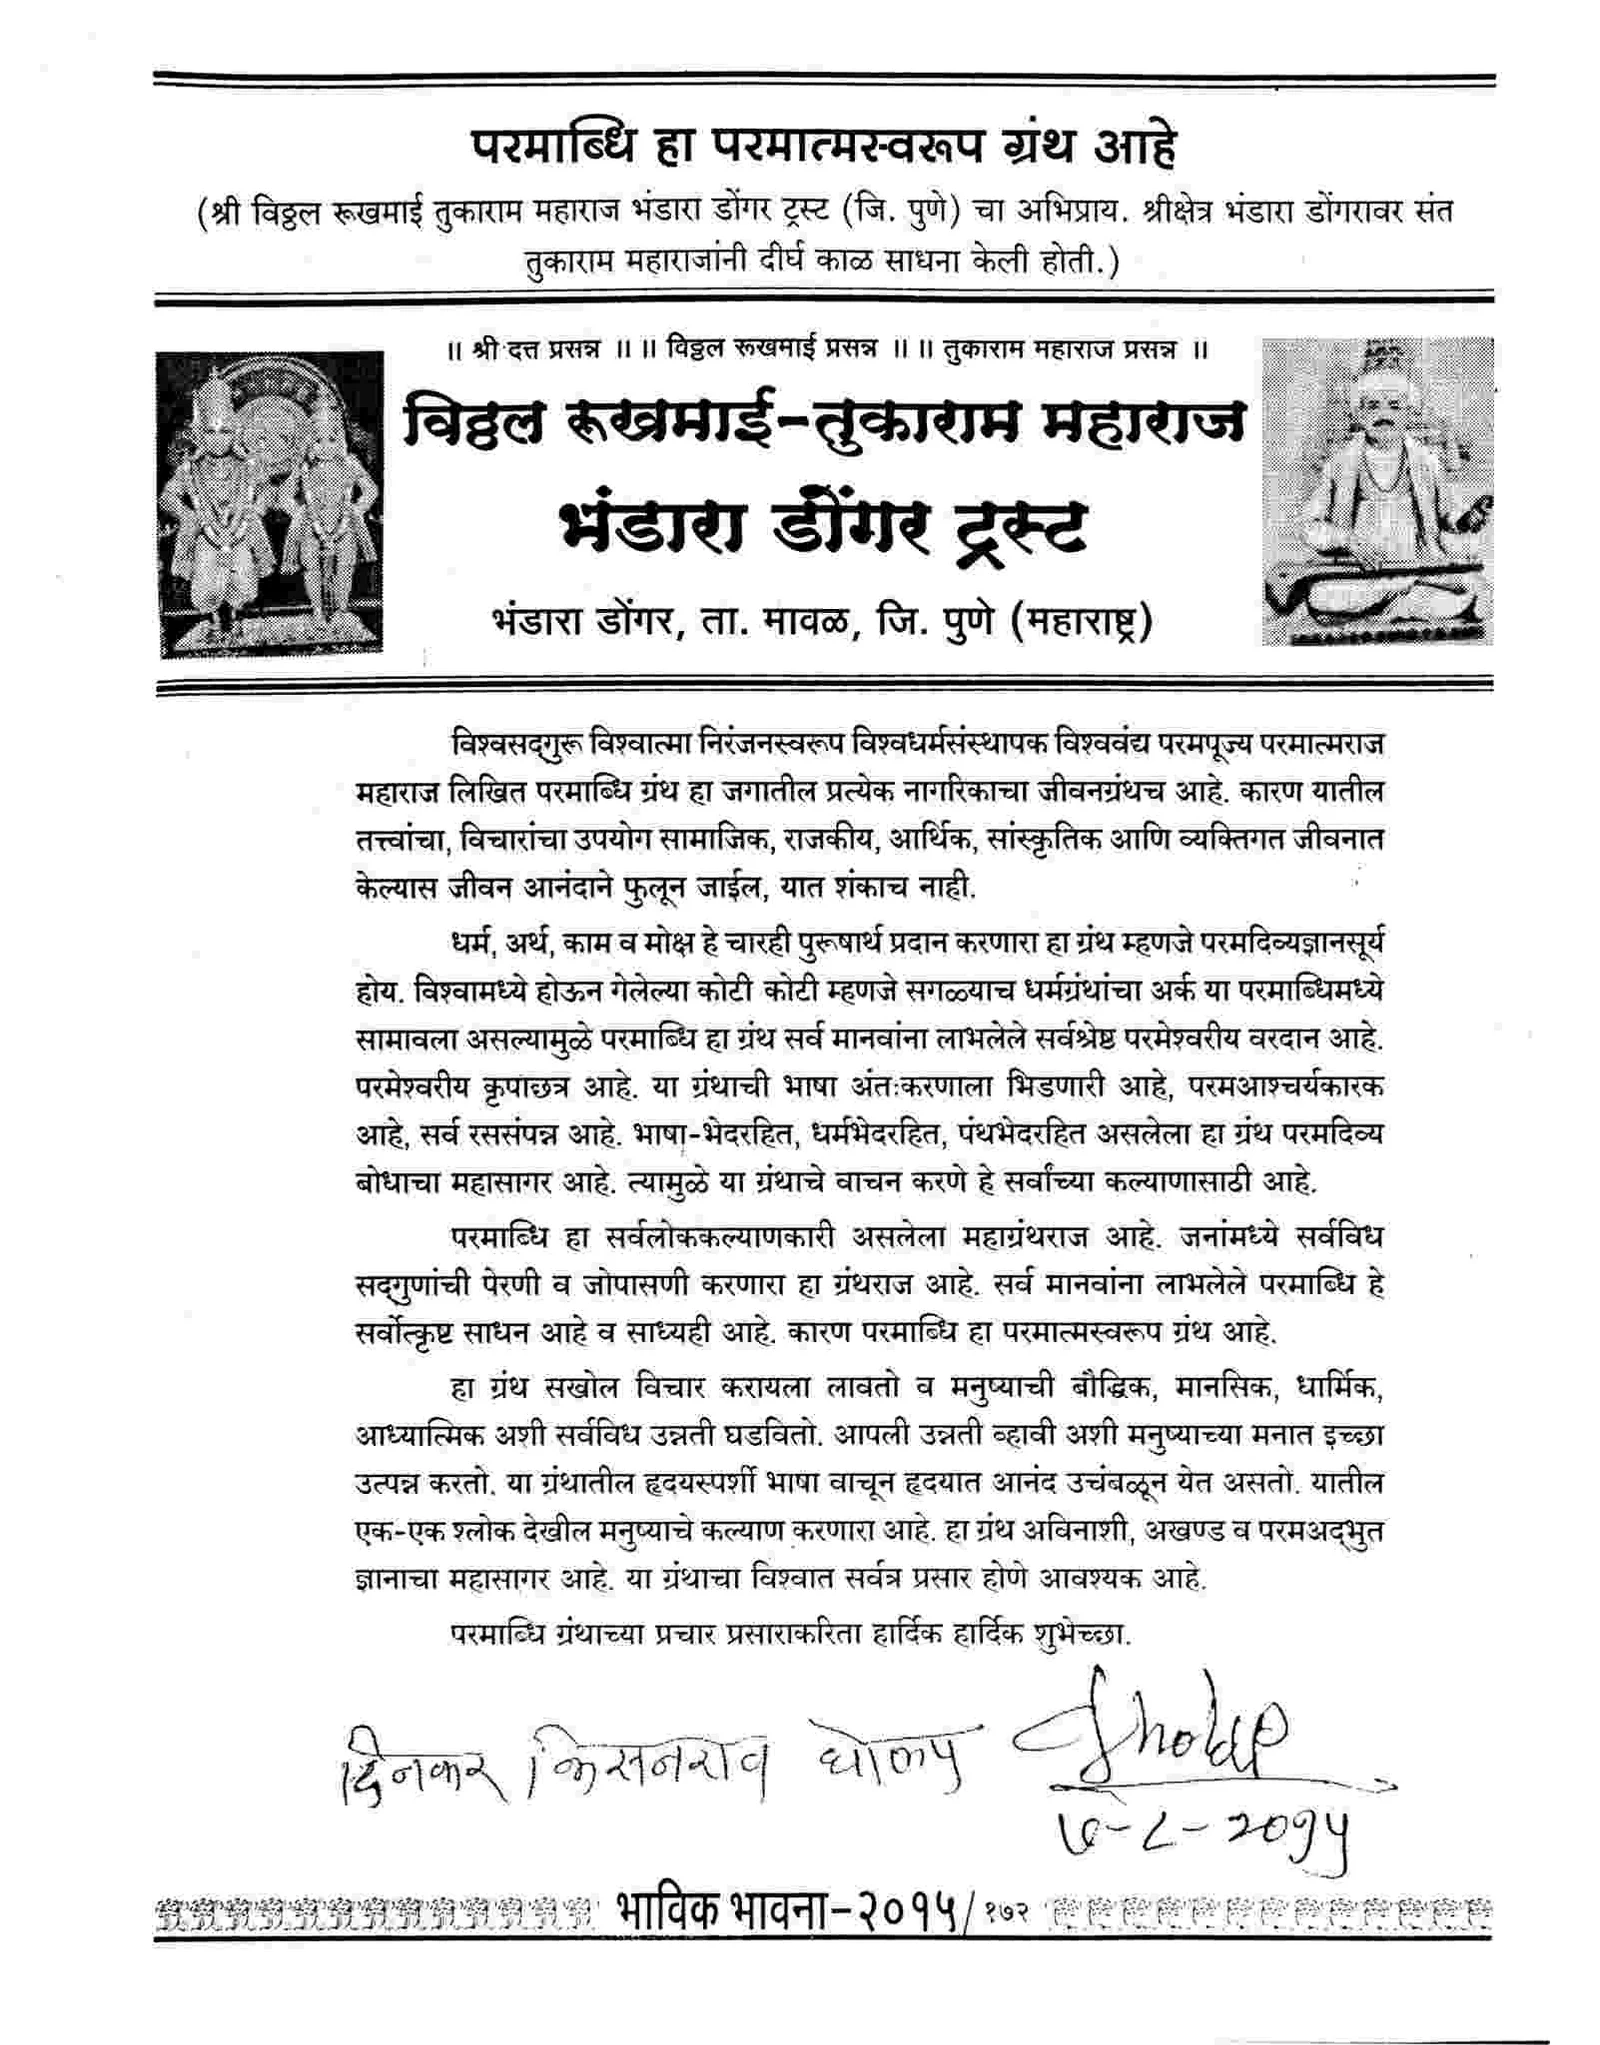 परमाब्धि हा परमात्मस्वरूप ग्रंथ आहे
(श्री विठ्ठल रूखमाई तुकाराम महाराज भंडारा डोंगर ट्रस्ट (जि. पुणे) चा अभिप्राय. श्रीक्षेत्र भंडारा डोंगरावर संत
तुकाराम महाराजांनी दीर्घ काळ साधना केली होती.)
॥ श्री दत्त प्रसन्न ॥ ॥ विठ्ठल रूखमाई प्रसन्न ॥ ॥ तुकाराम महाराज प्रसन्न ॥
विठ्ठल रूखमाई-तुकाराम महाराज
भंडारा डोंगर ट्रस्ट
भंडारा डोंगर, ता. मावळ, जि. पुणे (महाराष्ट्र)
विश्वसद्‌गुरू विश्वात्मा निरंजनस्वरूप विश्वधर्मसंस्थापक विश्ववंद्य परमपूज्य परमात्मराज
महाराज लिखित परमाब्धि ग्रंथ हा जगातील प्रत्येक नागरिकाचा जीवनग्रंथच आहे. कारण यातील
तत्त्वांचा, विचारांचा उपयोग सामाजिक, राजकीय, आर्थिक, सांस्कृतिक आणि व्यक्तिगत जीवनात
केल्यास जीवन आनंदाने फुलून जाईल, यात शंकाच नाही.
धर्म, अर्थ, काम व मोक्ष हे चारही पुरूषार्थ प्रदान करणारा हा ग्रंथ म्हणजे परमदिव्यज्ञानसूर्य
होय. विश्वामध्ये होऊन गेलेल्या कोटी कोटी म्हणजे सगळ्याच धर्मग्रंथांचा अर्क या परमाब्धिमध्ये
सामावला असल्यामुळे परमाब्धि हा ग्रंथ सर्व मानवांना लाभलेले सर्वश्रेष्ठ परमेश्वरीय वरदान आहे.
परमेश्वरीय कृपाछत्र आहे. या ग्रंथाची भाषा अंतःकरणाला भिडणारी आहे, परमआश्चर्यकारक
आहे, सर्व रससंपन्न आहे. भाषा-भेदरहित, धर्मभेदरहित, पंथभेदरहित असलेला हा ग्रंथ परमदिव्य
बोधाचा महासागर आहे. त्यामुळे या ग्रंथाचे वाचन करणे हे सर्वांच्या कल्याणासाठी आहे.
परमाब्धि हा सर्वलोककल्याणकारी असलेला महाग्रंथराज आहे. जनांमध्ये सर्वविध
सद्‌गुणांची पेरणी व जोपासणी करणारा हा ग्रंथराज आहे. सर्व मानवांना लाभलेले परमाब्धि हे
सर्वोत्कृष्ट साधन आहे व साध्यही आहे. कारण परमाब्धि हा परमात्मस्वरूप ग्रंथ आहे.
हा ग्रंथ सखोल विचार करायला लावतो व मनुष्याची बौद्धिक, मानसिक, धार्मिक,
आध्यात्मिक अशी सर्वविध उन्नती घडवितो. आपली उन्नती व्हावी अशी मनुष्याच्या मनात इच्छा
उत्पन्न करतो. या ग्रंथातील हृदयस्पर्शी भाषा वाचून हृदयात आनंद उचंबळून येत असतो. यातील
एक-एक श्लोक देखील मनुष्याचे कल्याण करणारा आहे. हा ग्रंथ अविनाशी, अखण्ड व परमअद्‌भुत
ज्ञानाचा महासागर आहे. या ग्रंथाचा विश्वात सर्वत्र प्रसार होणे आवश्यक आहे.
परमाब्धि ग्रंथाच्या प्रचार प्रसाराकरिता हार्दिक हार्दिक शुभेच्छा.
दिनकर किसनराव घोलप
७-८-२०१५
भाविक भावना-२०१५/१७२